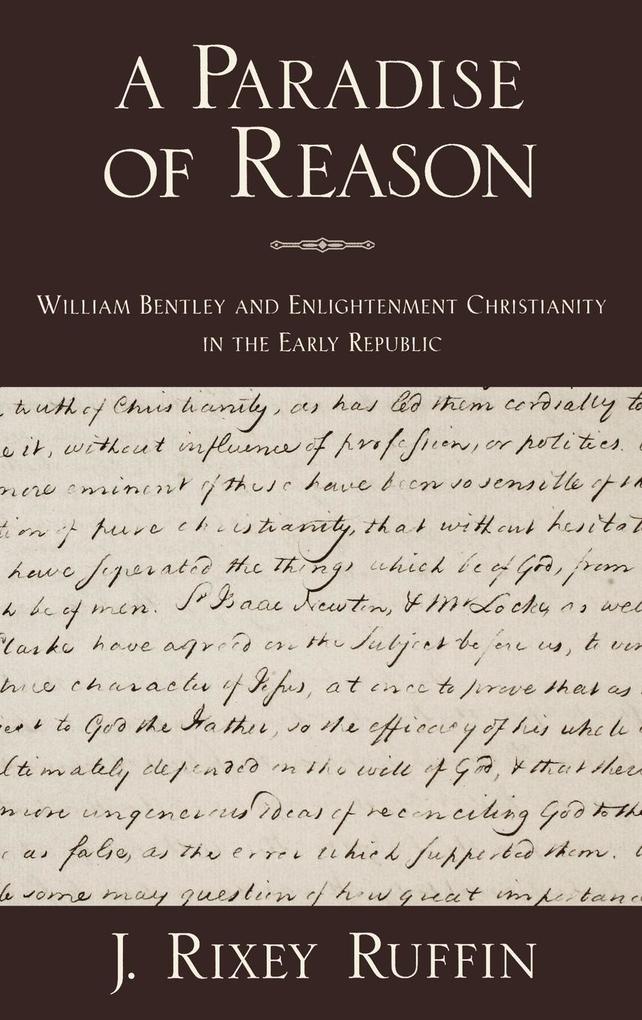 A PARADISE
OF REASON
WILLIAM BENTLEY AND ENLIGHTENMENT CHRISTIANITY
IN THE EARLY REPUBLIC
truth of Christianity, as has led them cordially to
it, without influence of profession, or politics.
more eminent of these have been so sensible of th
tion of pure christianity, that without hesitat
have seperated the things which be of God, from
h be of men. Sr Isaac Newton, & Mr Locke, as wel
Clarke have agreed on the Subject before us, to
true character of Jesus, at once to prove that as
to God the Father, so the efficacy of his whole
ltimately depended on the will of God, & that there
more ungenerous ideas of reconciling God to the
as false, as the error which supported them.
some may question of how great importanc
J. RIXEY RUFFIN